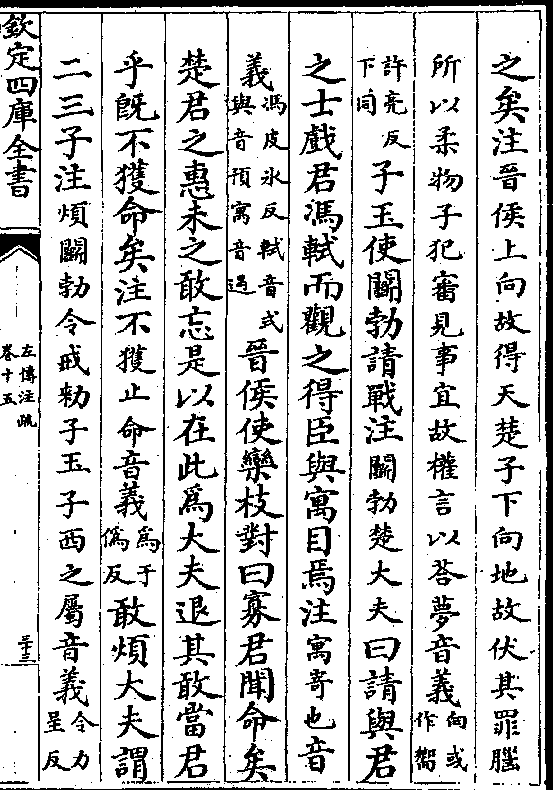 之矣注晉侯上向故得天楚子下向地故伏其罪腦
所以柔物子犯審見事宜故權言以荅夢音義向或作嚮
許亮反下同子玉使鬭勃請戰注鬭勃楚大夫曰請與君
之士戲君馮軾而觀之得臣與寓目焉注寓寄也音
義馮皮氷反軾音式與音預寓音遇晉侯使欒枝對曰寡君聞命矣
楚君之惠未之敢忘是以在此爲大夫退其敢當君
乎旣不獲命矣注不獲止命音義爲于僞反敢煩大夫謂
二三子注煩鬭勃令戒敕子玉子西之屬音義令力呈反
欽定四庫全書
左傳注疏
卷十五
三十三